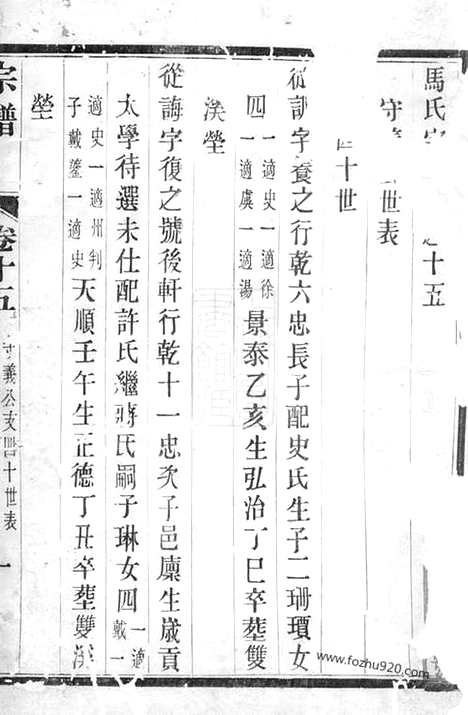 馬氏
十五
守
世表
十世
從訓字養之行乾六忠長子配史氏生子二珊瓊女
四一適史一適徐一適虞一適湯景泰乙亥生弘治丁巳卒塟雙
渼塋
從誨字復之號後軒行乾十一忠次子邑廩生歲貢
太學待選未仕配許氏繼蔣氏嗣子琳女四一適戴一
適史一適州判子戴鎏一適史天順壬午生正德丁丑卒塟雙渼
塋
宗譜
卷十五
義公支
十世表
一
www.fozhu920.com